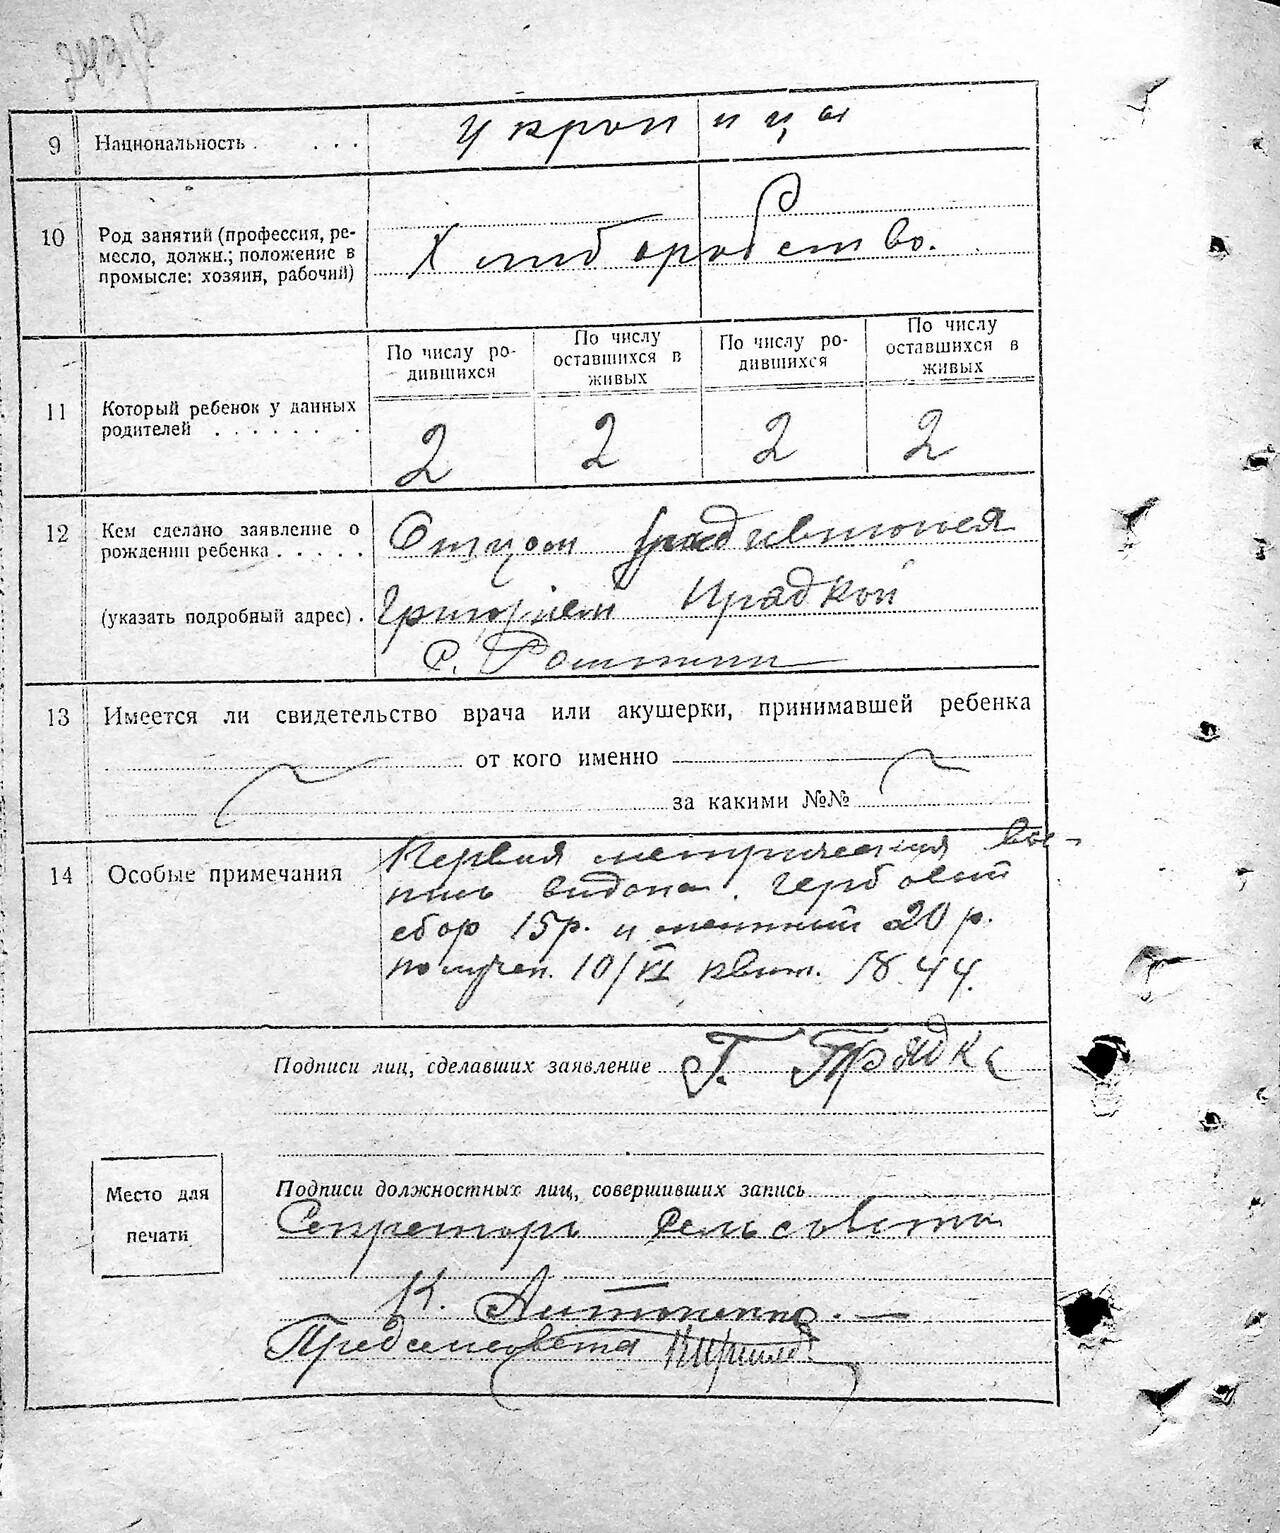 9 Национальность . . . . украинцы
10 Род занятий (профессия, ре-
месло, должн.; положение в
промысле: хозяин, рабочий)
Хлиборобство.
По числу ро-
дившихся
По числу
оставшихся в
живых
По числу ро-
дившихся
По числу
оставшихся в
живых
11 Который ребенок у данных
родителей . . . . . . .
2 2 2 2
12 Кем сделано заявление о
рождении ребенка . . . . .
Отцом
(указать подробный адрес) .
Григорием Прядкой
13 Имеется ли свидетельство врача или акушерки, принимавшей ребенка
от кого именно
за какими №№
14 Особые примечания
Первая метрическая вы-
пись видана. Гербовый
сбор 15р. и 20 р.
получен. 10/VI квит. 44.
Подписи лиц, сделавших заявление Г. Прядка
Подписи должностных лиц, совершивших запись
Секретарь сельсовета
К. Антоненко. —
Предсельсовета
Место для
печати